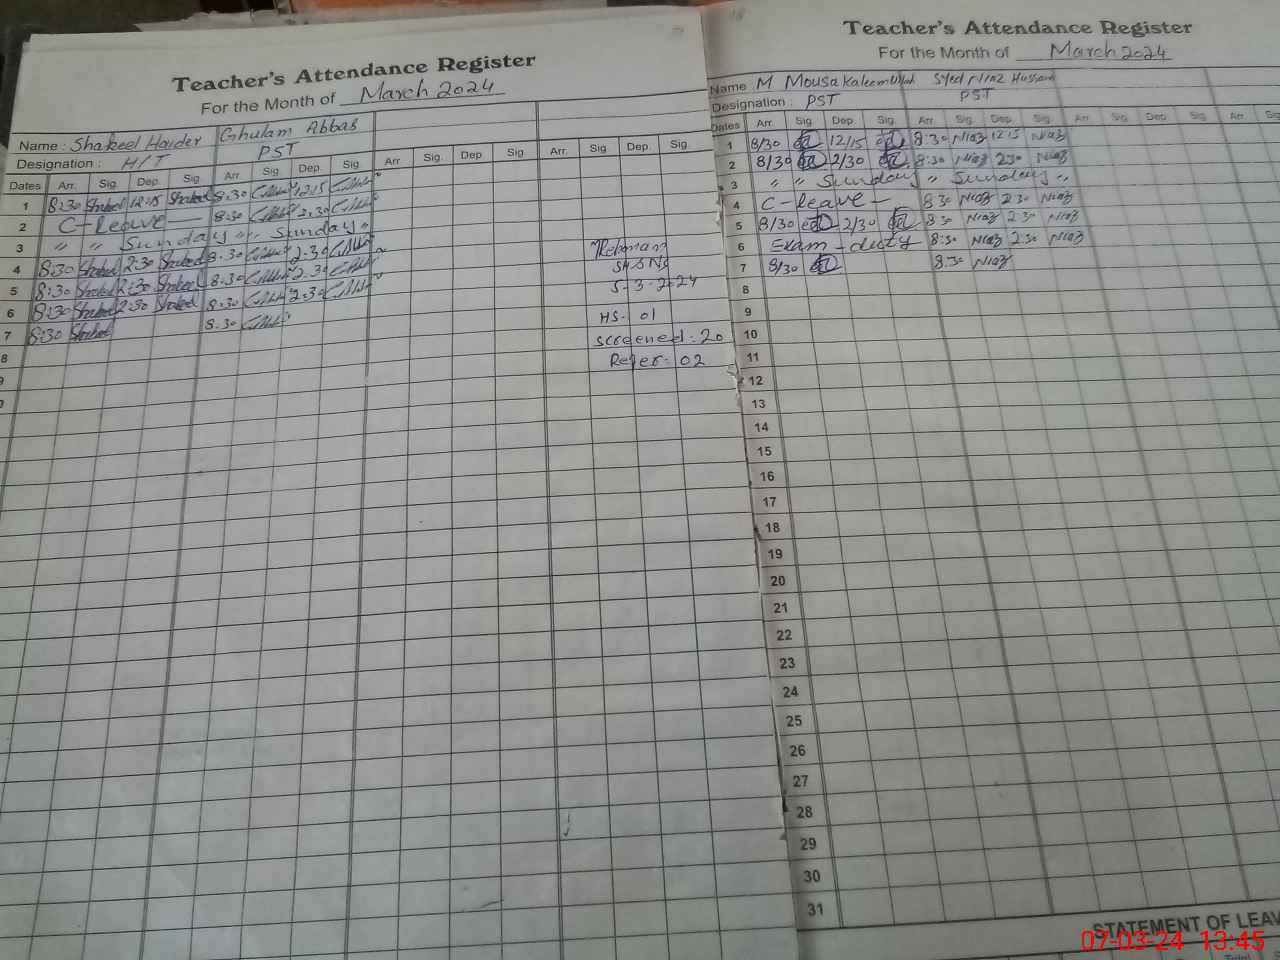 Teacher's Attendance Register
For the Month of March 2024
Name : Shakeel Haider Ghulam Abbas
Designation : H/T PST
Dates Arr. Sig. Dep. Sig. Arr. Sig. Dep. Sig. Arr. Sig. Dep Sig Arr. Sig Dep. Sig.
1 8:30 Shakeel 12:15 Shakeel 8:30 12:15
2 C-Leave 8:30 2:30
3 " " Sunday " " Sunday "
4 8:30 Shakeel 2:30 Shakeel 8:30 2:30
5 8:30 Shakeel 2:30 Shakeel 8:30 2:30
6 8:30 Shakeel 2:30 Shakeel 8:30 2:30
7 8:30 Shakeel 8:30
8
Rehmana
5-3-2024
HS- 01
Screened: 20
Refer: 02
Teacher's Attendance Register
For the Month of March 2024
Name M Mousa Kaleemullah Syed Niaz Hussain
Designation : PST PST
Dates Arr. Sig. Dep. Sig. Arr Sig. Dep. Sig. Arr Sig. Dep. Sig. Arr. Sig
1 8/30 12/15 8:30 Niaz 12:15 Niaz
2 8/30 2/30 8:30 Niaz 2:30 Niaz
3 " " Sunday " Sunday "
4 C-leave - 8 30 Niaz 2 30 Niaz
5 8/30 2/30 8 30 Niaz 2 30 Niaz
6 Exam - duty 8:30 Niaz 2:30 Niaz
7 8/30 8:30 Niaz
8
9
10
11
12
13
14
15
16
17
18
19
20
21
22
23
24
25
26
27
28
29
30
31
STATEMENT OF LEAV
07-03-24 13:45
Total